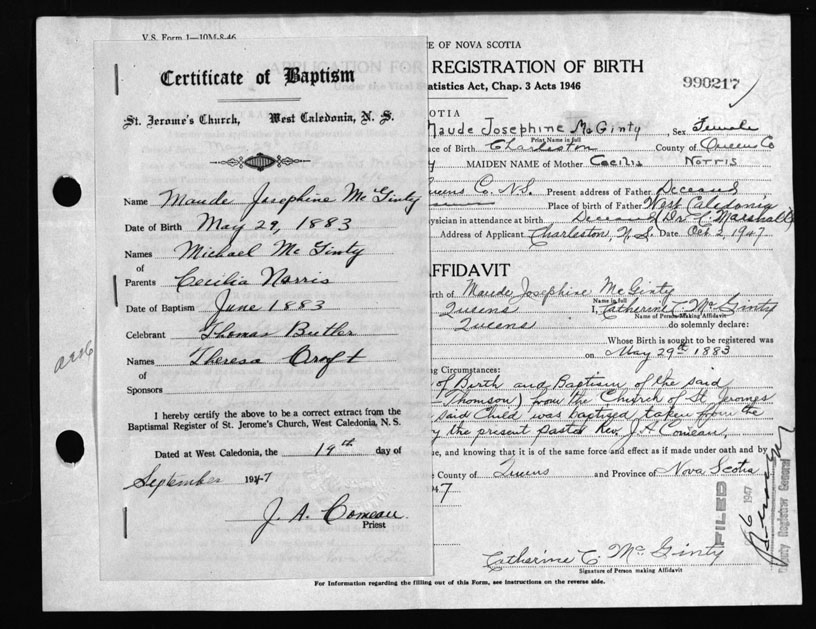 V.S. Form 1—10M-8-46
Certificate of Baptism
St. Jerome's Church, West Caledonia, N. S.
Name Maude Josephine McGinty
Date of Birth May 29, 1883
Names Michael McGinty
of
Parents Cecilia Norris
Date of Baptism June 1883
Celebrant Thomas Butler
Names Theresa Croft
of
Sponsors
I hereby certify the above to be a correct extract from the
Baptismal Register of St. Jerome's Church, West Caledonia, N. S.
Dated at West Caledonia, the 19th day of
September 1947
J. A. Comeau
Priest
E OF NOVA SCOTIA
APPLICATION FOR REGISTRATION OF BIRTH
990217
atistics Act, Chap. 3 Acts 1946
COTIA
Maude Josephine McGinty Sex Female
Print Name in full
ace of Birth Charleston County of Queens Co
MAIDEN NAME of Mother Cecilia Norris
Queens Co. N.S. Present address of Father Deceased
Place of birth of Father West Caledonia
ysician in attendance at birth Deceased (Dr. C. Marshall)
Address of Applicant Charleston, N.S. Date Oct 2, 1947
FFIDAVIT
irth of Maude Josephine McGinty
Name in full
Queens I, Catherine C. McGinty
Name of Person Making Affidavit
Queens do solemnly declare:
Whose Birth is sought to be registered was
on May 29th 1883
ng Circumstances:
of Birth and Baptism of the said
Thomson) from the Church of St Jeromes
said Child was baptized taken from the
y the present pastor Rev. J. A Comeau,
ue, and knowing that it is of the same force and effect as if made under oath and by
e County of Queens and Province of Nova Scotia
47
FILED
6 1947
Deputy Registrar General
Catherine C. McGinty
Signature of Person making Affidavit
For Information regarding the filling out of this Form, see instructions on the reverse side.